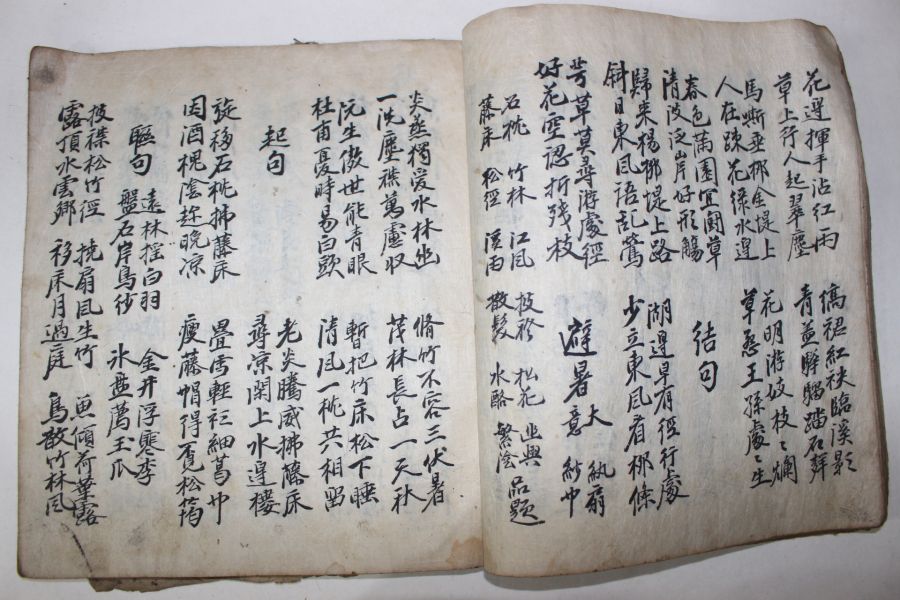 花邊揮手沾紅雨
草上行人起翠塵
馬嘶垂柳金堤上
人在疎花綠水邊
春色滿園宜鬪草
清波泛岸好形觴
歸來楊柳堤上路
斜日東風語乱鶯
芳草莫尋游處徑
好花空認折残枝
縞裙紅袂臨溪影
青盖驊騮踏石聲
花明游妓枝〻爛
草怨王孫處〻生
結句
湖邊早有徑行處
少立東風看柳條
避暑
意
天 紈扇 紗巾
石枕 竹林 江風
披襟 松花 幽興
藤床 松徑 溪雨
散髮 水酪 繁陰 品題
炎蒸獨愛水林幽
一洗塵襟萬慮収
阮生傲世能青眼
杜甫憂時易白頭
脩竹不容三伏暑
茂林長占一天秋
暫把竹床松下睡
清風一枕共相留
起句
旋移石枕拂藤床
因酒槐陰趁晚凉
老炎騰威拂藤床
尋凉閑上水邊樓
疊雪輕衫細葛巾
瘦藤帽得覓松筠
聯句
遠林揺白羽
盤石岸烏紗
金井浮寒李
氷盤薦玉瓜
披襟松竹徑
露頂水雲鄉
挽扇風生竹
移床月過庭
魚傾荷葉露
鳥散竹林風